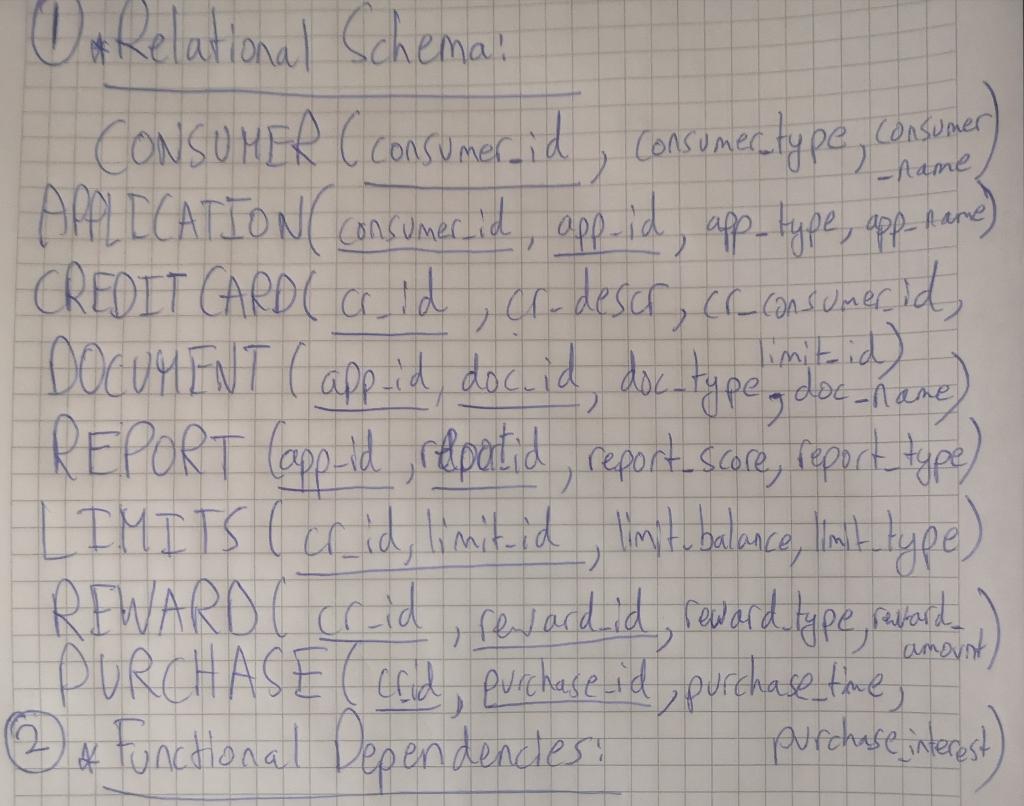 ① *Relational Schema:
CONSUMER (consumer_id, consumer_type, consumer
_name)
APPLICATION( consumer_id, app_id, app_type, app_name)
CREDIT CARD( cr_id, cr_descr, cr_consumer_id,
limit_id)
DOCUMENT ( app_id, doc_id, doc_type, doc_name)
REPORT (app_id, reportid, report_score, report_type)
LIMITS ( cr_id, limit_id, limit_balance, limit_type)
REWARD( cr_id, reward_id, reward_type, reward_
amount)
PURCHASE ( cr_id, purchase_id, purchase_time,
purchase_interest)
② * Functional Dependencies: